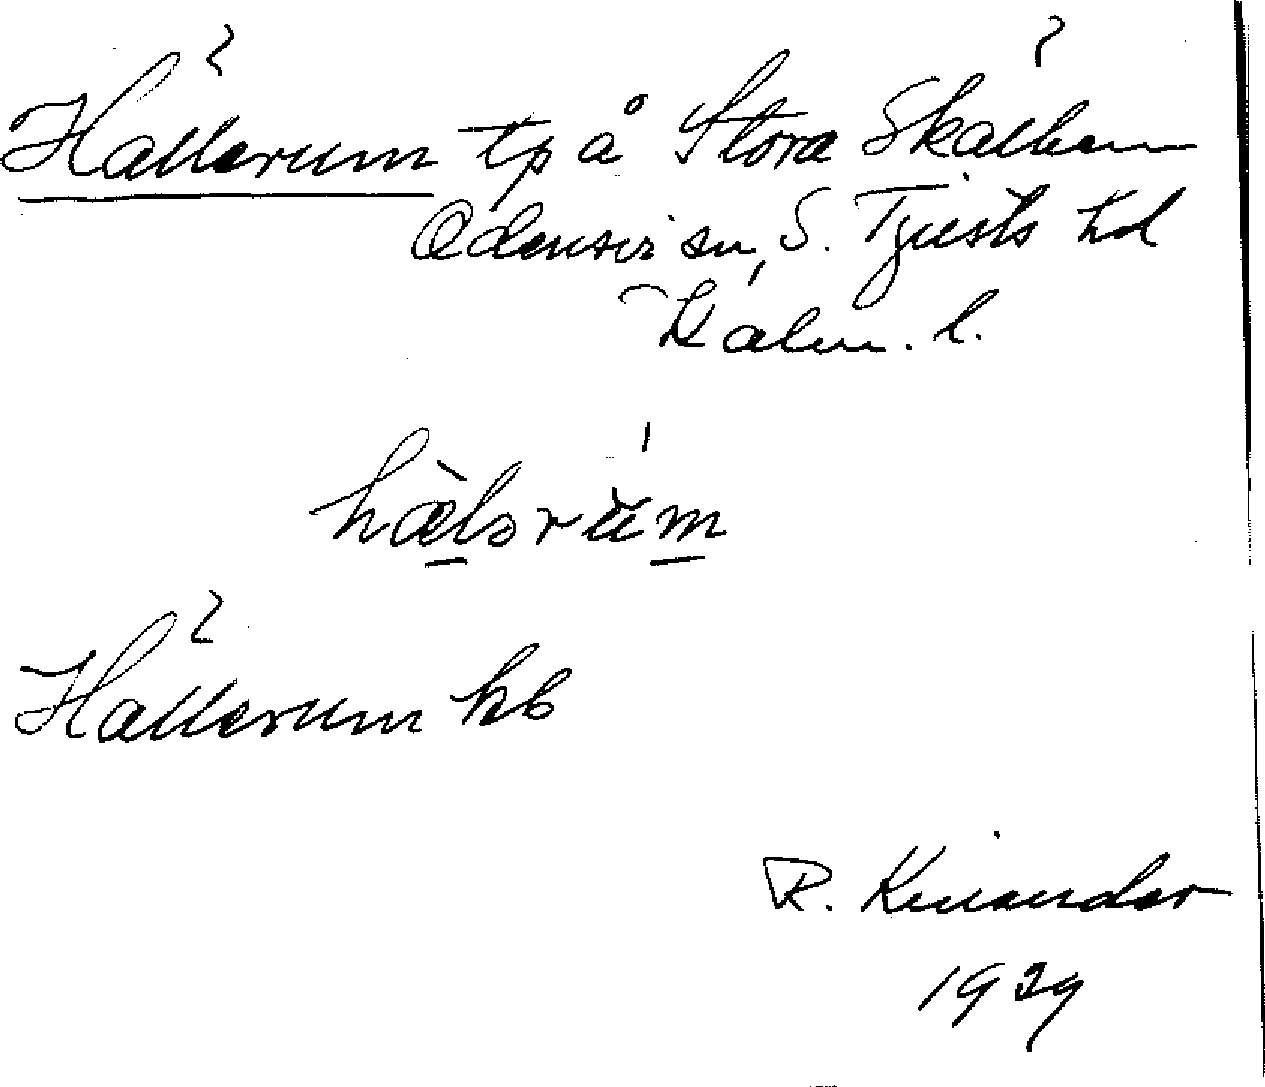 Hällerum tp å Stora Skälhem
Odensvi sn, S. Tjusts hd
Kalm. l.
hæ̀lərum
Hällerum hb
R. Kinander
1929